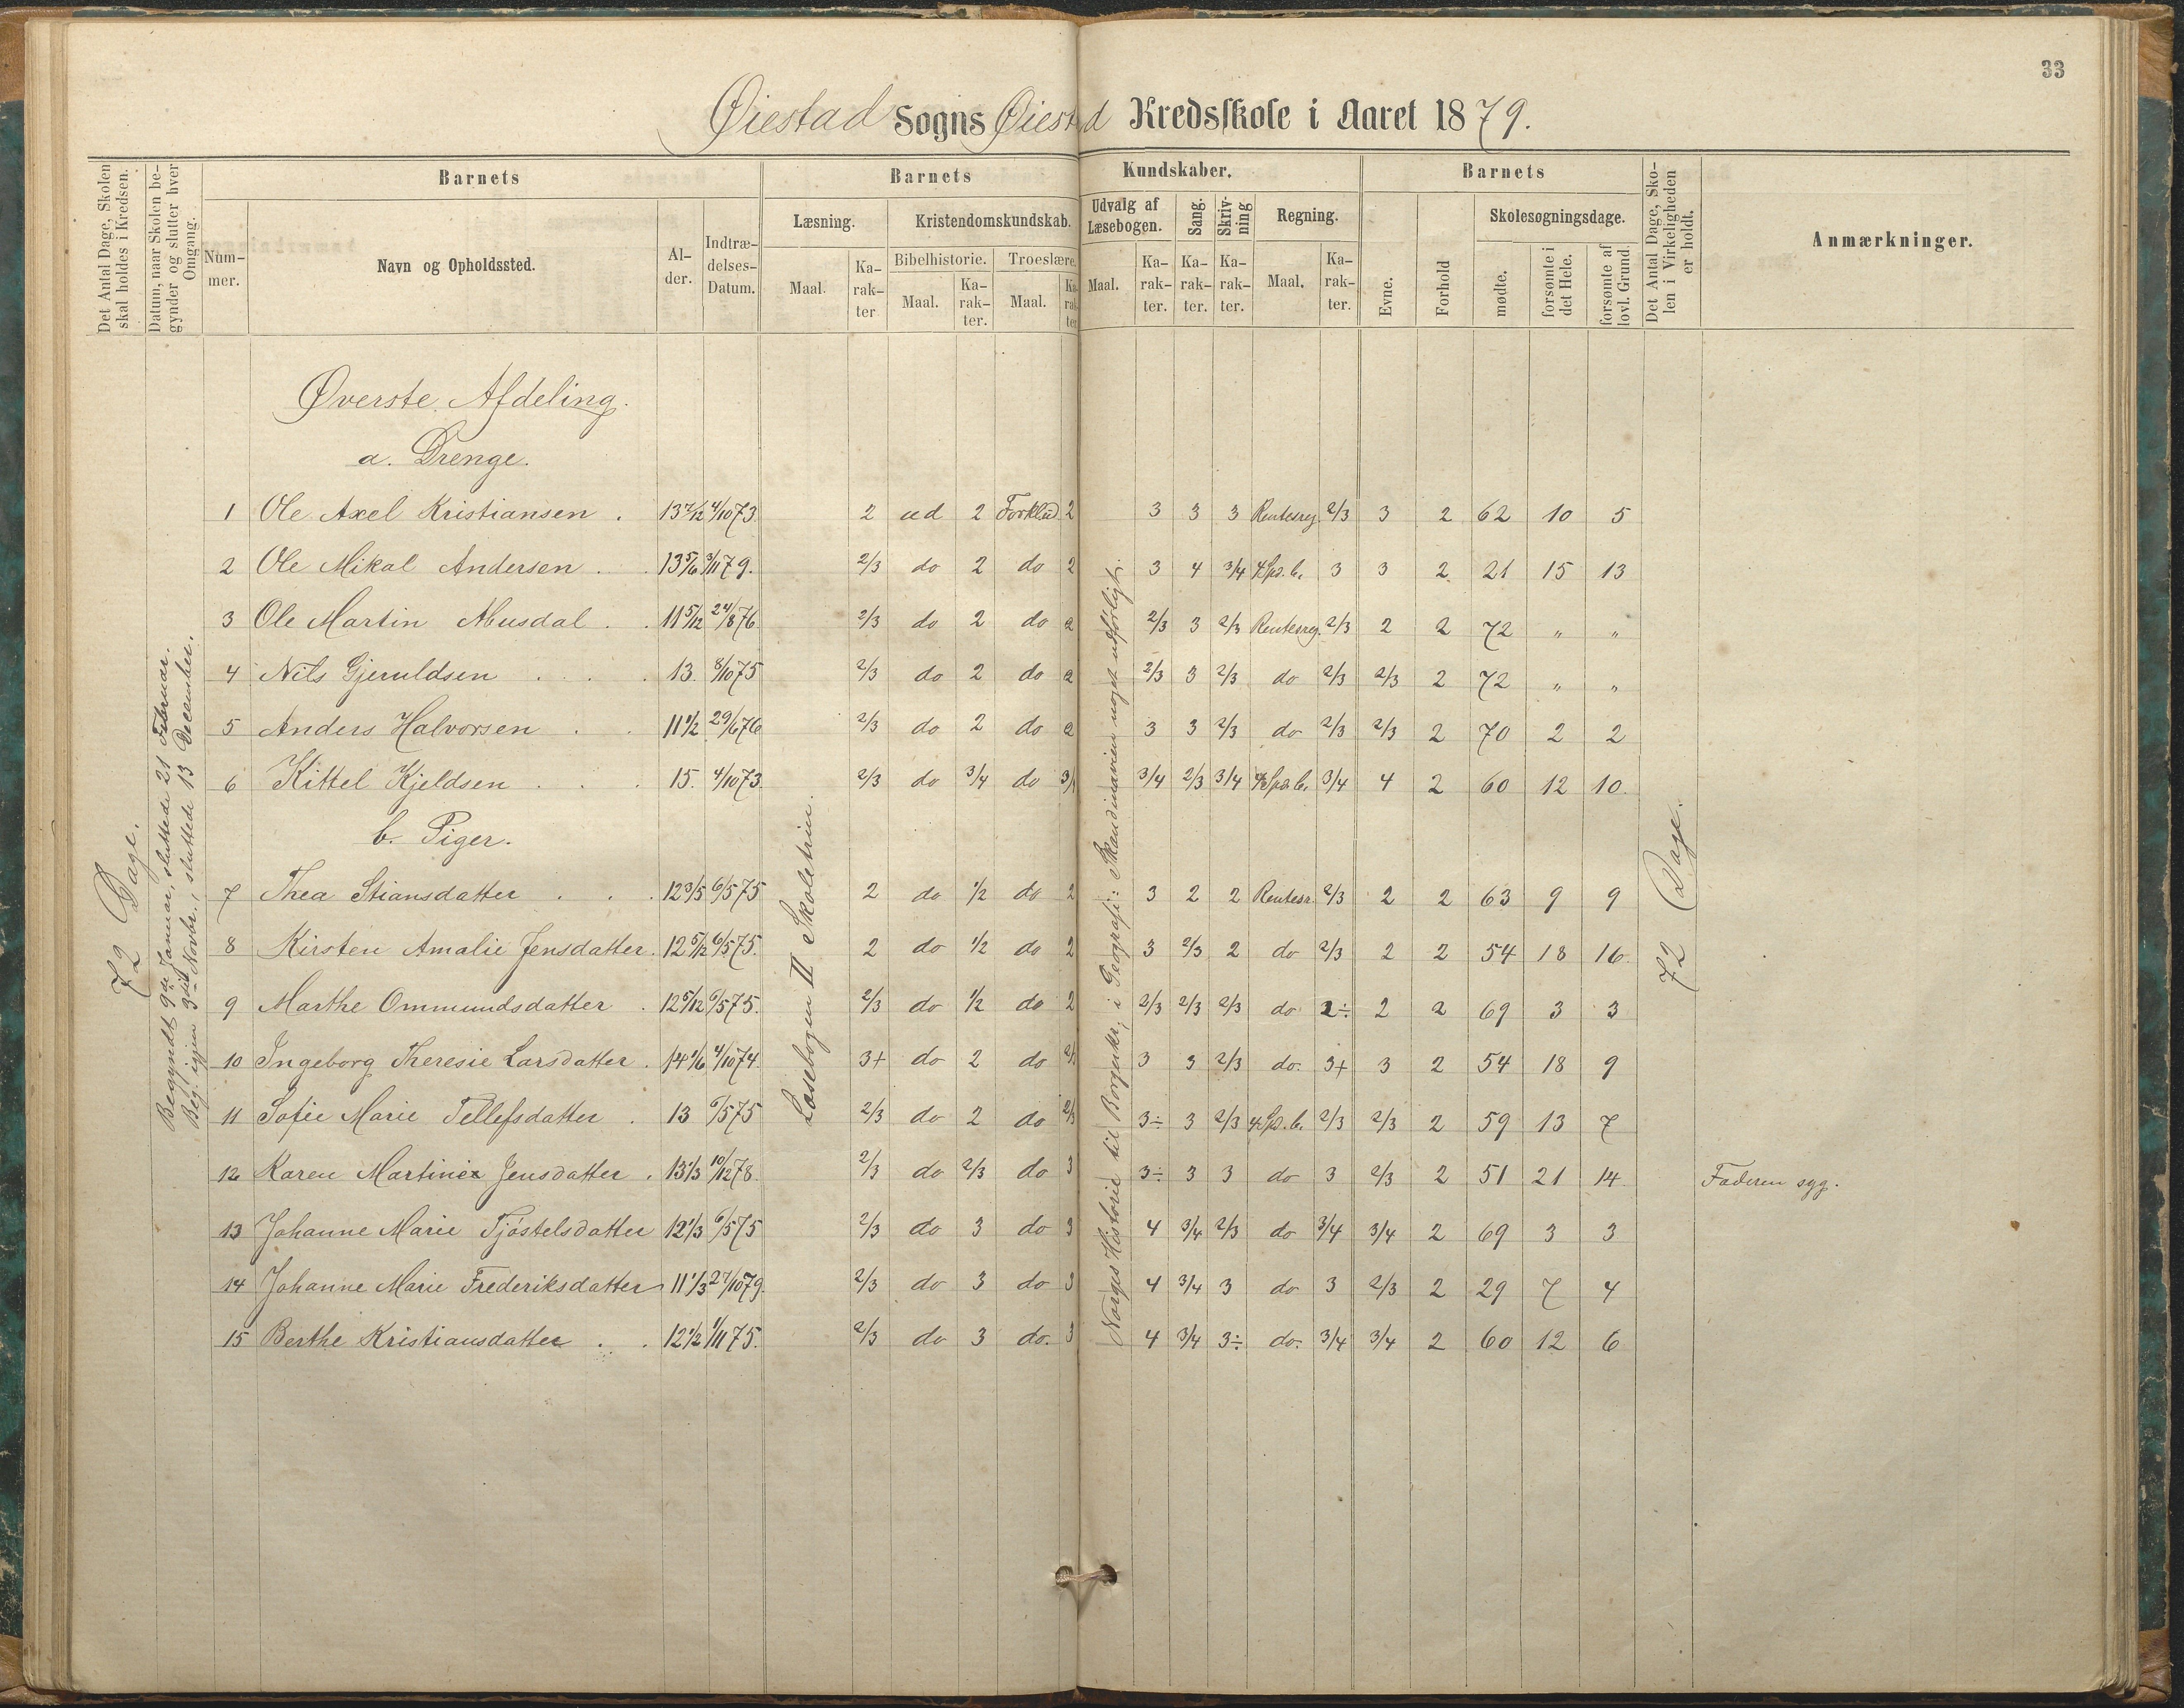 33
Øiestad Sogns Øiestad Kredsskole i Aaret 1879.
Det Antal Dage, Skolen skal holdes i Kredsen.
Datum, naar Skolen begynder og slutter hver Omgang.
Barnets
Nummer.
Navn og Opholdssted.
Alder.
Indtrædelses-Datum.
Barnets Kundskaber.
Læsning.
Maal.
Karakter
Kristendomskundskab.
Bibelhistorie.
Maal.
Karakter.
Troeslære.
Maal.
Karakter
Udvalg af Læsebogen.
Maal.
Karakter.
Sang.
Karakter.
Skrivning
Karakter.
Regning.
Maal.
Karakter.
Barnets
Evne.
Forhold
Skolesøgningsdage.
mødte.
forsømte i det Hele.
forsømte af lovl. Grund.
Det Antal Dage, Skolen i Virkeligheden er holdt.
Anmærkninger.
72 Dage.
Begyndt 9de Januar, sluttede 21 Februar.
Beg. igjen 3die Novbr., sluttede 13 December.
Læsebogen II Skoletrin.
Norges Historie til Borgerkr., i Geografi: Skandinavien noget udførligt.
72 Dage.
Øverste Afdeling.
a. Drenge.
1 Ole Axel Kristiansen . 4/10 73 2 ud 2 2 3 3 3 Rentesreg. 2/3 3 2 62 10 5
2 Ole Mikal Andersen . . 13 5/6 3/11 79. 2/3 do 2 do 2 3 4 3/4 3 3 2 21 15 13
3 Ole Martin . . 11 5/12 24/8 76 2/3 do 2 do 2 2/3 3 2/3 Rentesreg. 2/3 2 2 72 " "
4 Nils Gjeruldsen . . . 13. 8/10 75 2/3 do 2 do 2 2/3 3 2/3 do 2/3 2/3 2 72 " "
5 Anders Halvorsen . . 11 1/2 29/6 76 2/3 do 2 do 2 3 3 2/3 do 2/3 2/3 2 70 2 2
6 Kittel Kjeldsen . . . 15. 4/10 73. 2/3 do 3/4 do 3/4 2/3 3/4 3/4 4 2 60 12 10.
b. Piger.
7 Thea Stiansdatter . . . 12 3/5 6/5 75 2 do 1/2 do 2 3 2 2 Rentesr. 2/3 2 2 63 9 9
8 Kirsten Amalie Jensdatter. 12 5/12 6/5 75. 2 do 1/2 do 2 3 2/3 2 do 2/3 2 2 54 18 16.
9 Marthe Ommundsdatter . 12 5/12 6/5 75. 2/3 do 1/2 do 2 2/3 2/3 2/3 do 2÷ 2 2 69 3 3
10 Ingeborg Theresie Larsdatter . 14 1/6 4/10 74. 3+ do 2 do 3 3 2/3 do. 3+ 3 2 54 18 9
11 Sofie Marie Tellefsdatter . 13 6/5 75 2/3 do 2 do 2/3 3÷ 3 2/3 2/3 2/3 2 59 13 7
12 Karen Martine Jensdatter . 13 1/3 10/12 78. 2/3 do 2/3 do 3 3÷ 3 3 do 3 2/3 2 51 21 14 Faderen syg.
13 Johanne Marie Tjøstelsdatter 12 1/3 6/5 75 2/3 do 3 do 3 4 3/4 2/3 do 3/4 3/4 2 69 3 3
14 Johanne Marie Frederiksdatter 11 1/3 27/10 79. 2/3 do 3 do 3 4 3/4 3 do 3 2/3 2 29 7 4
15 Berthe Kristiansdatter . . 12 1/2 1/11 75. 2/3 do 3 do. 3 4 3/4 3÷ do. 3/4 3/4 2 60 12 6